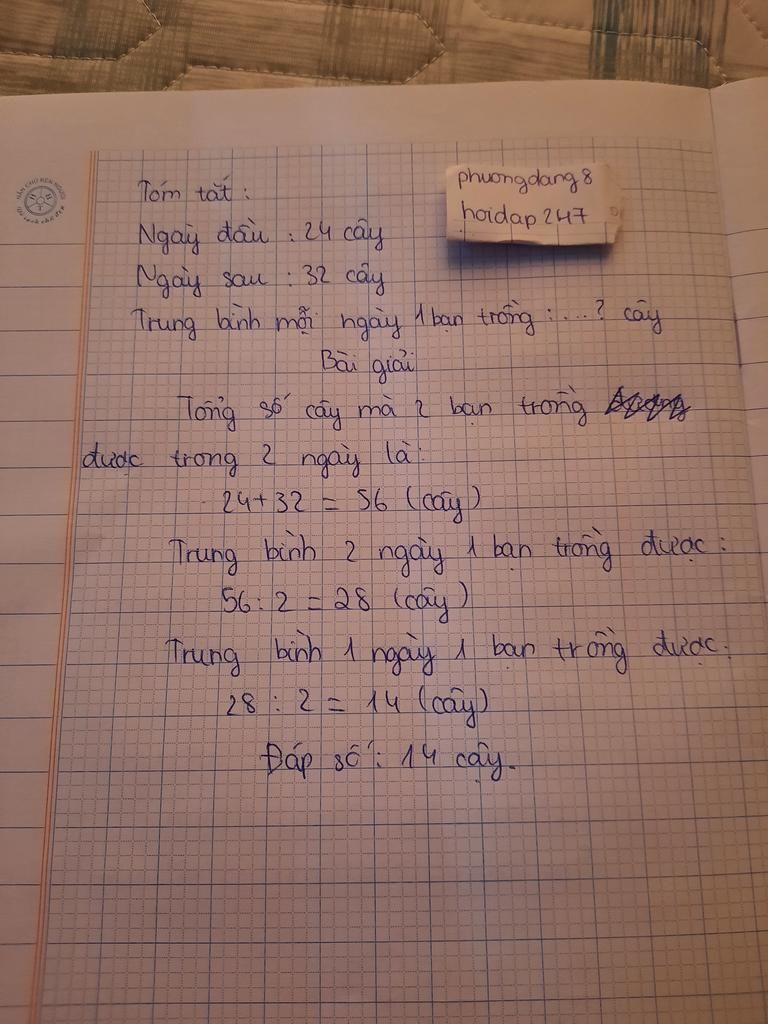 Tóm tắt :
phuongdang8
hoidap247
Ngày đầu : 24 cây
Ngày sau : 32 cây
Trung bình mỗi ngày 1 bạn trồng : ....? cây
Bài giải
Tổng số cây mà 2 bạn trồng
được trong 2 ngày là:
24+32 = 56 (cây)
Trung bình 2 ngày 1 bạn trồng được :
56 : 2 = 28 (cây)
Trung bình 1 ngày 1 bạn trồng được:
28 : 2 = 14 (cây)
Đáp số : 14 cây.